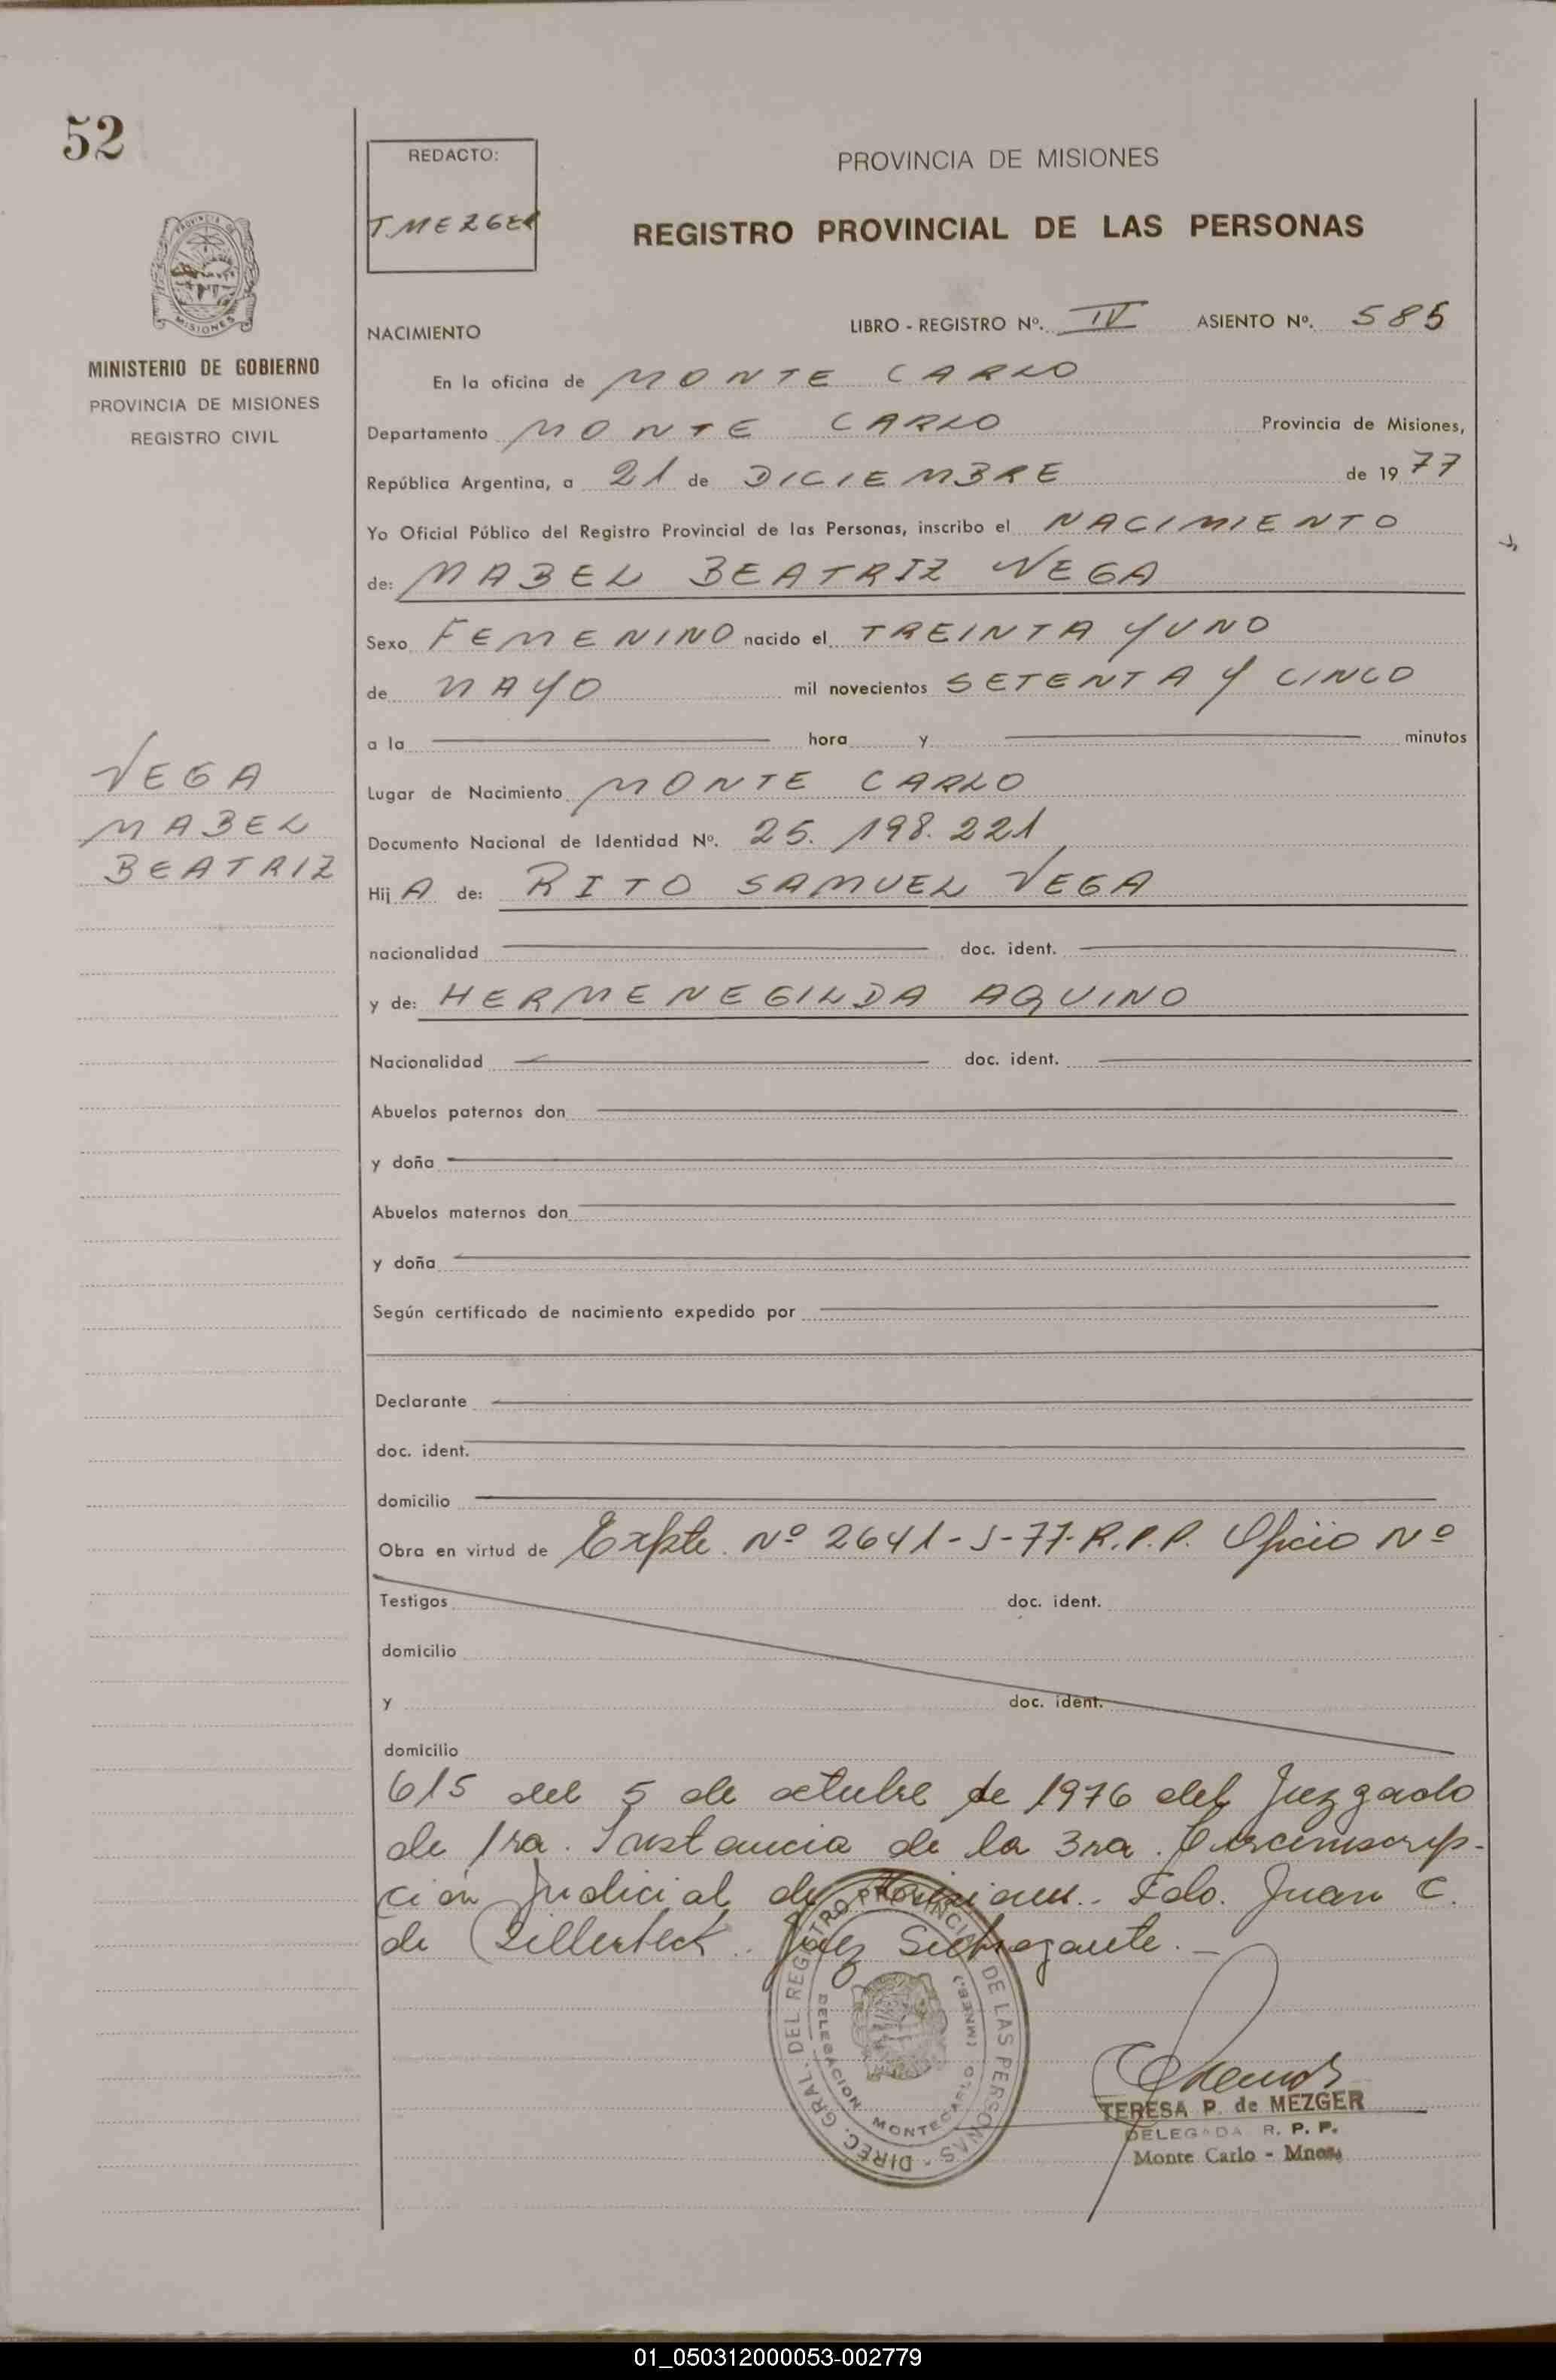 52
REDACTO:
T. MEZGER
PROVINCIA DE MISIONES
REGISTRO PROVINCIAL DE LAS PERSONAS
MISIONES
MINISTERIO DE GOBIERNO
PROVINCIA DE MISIONES
REGISTRO CIVIL
NACIMIENTO LIBRO - REGISTRO Nº. IV ASIENTO Nº. 585
En la oficina de MONTE CARLO
Departamento MONTE CARLO Provincia de Misiones,
República Argentina, a 21 de DICIEMBRE de 19 77
Yo Oficial Público del Registro Provincial de las Personas, inscribo el NACIMIENTO
de: MABEL BEATRIZ VEGA
Sexo FEMENINO nacido el TREINTA Y UNO
de MAYO mil novecientos SETENTA Y CINCO
a la hora y minutos
VEGA
MABEL
BEATRIZ
Lugar de Nacimiento MONTE CARLO
Documento Nacional de Identidad Nº. 25.198.221
Hij A de: RITO SAMUEL VEGA
nacionalidad doc. ident.
y de: HERMENEGILDA AQUINO
Nacionalidad doc. ident.
Abuelos paternos don
y doña
Abuelos maternos don
y doña
Según certificado de nacimiento expedido por
Declarante
doc. ident.
domicilio
Obra en virtud de Expte. Nº 2641-J-77-R.P.P. Oficio Nº
Testigos doc. ident.
domicilio
y doc. ident.
domicilio
615 del 5 de octubre de 1976 del Juzgado
de 1ra. Instancia de la 3ra. Circunscrip-
ción Judicial de Misiones.- Fdo. Juan C.
de Juez Subrogante.-
DIREC. GRAL. DEL REGISTRO PROVINCIAL DE LAS PERSONAS -
DELEGACION MONTECARLO (MNES.)
TERESA P. de MEZGER
DELEGADA R. P. P.
Monte Carlo - Mnes.
01_050312000053-002779